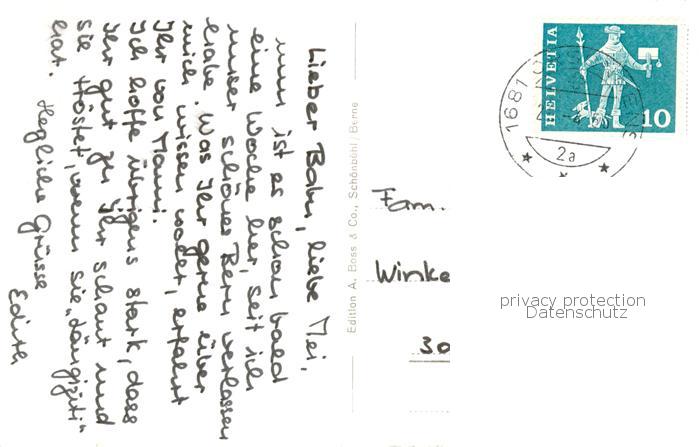 Lieber Babu, liebe Mei,
nun ist es schon bald
eine Woche her, seit ich
unser schönes Bern verlassen
habe. Was Ihr gerne über
mich wissen wollet, erfahrt
Ihr von Mami.
Ich hoffe übrigens stark, dass
Ihr gut zu Ihr schaut und
sie tröstet, wenn sie
hat. Herzliche Grüsse
Edith
Edition A. Boss & Co., Schönbühl / Berne
Fam.
Winke
30
HELVETIA
10
1681
2a
privacy protection
Datenschutz